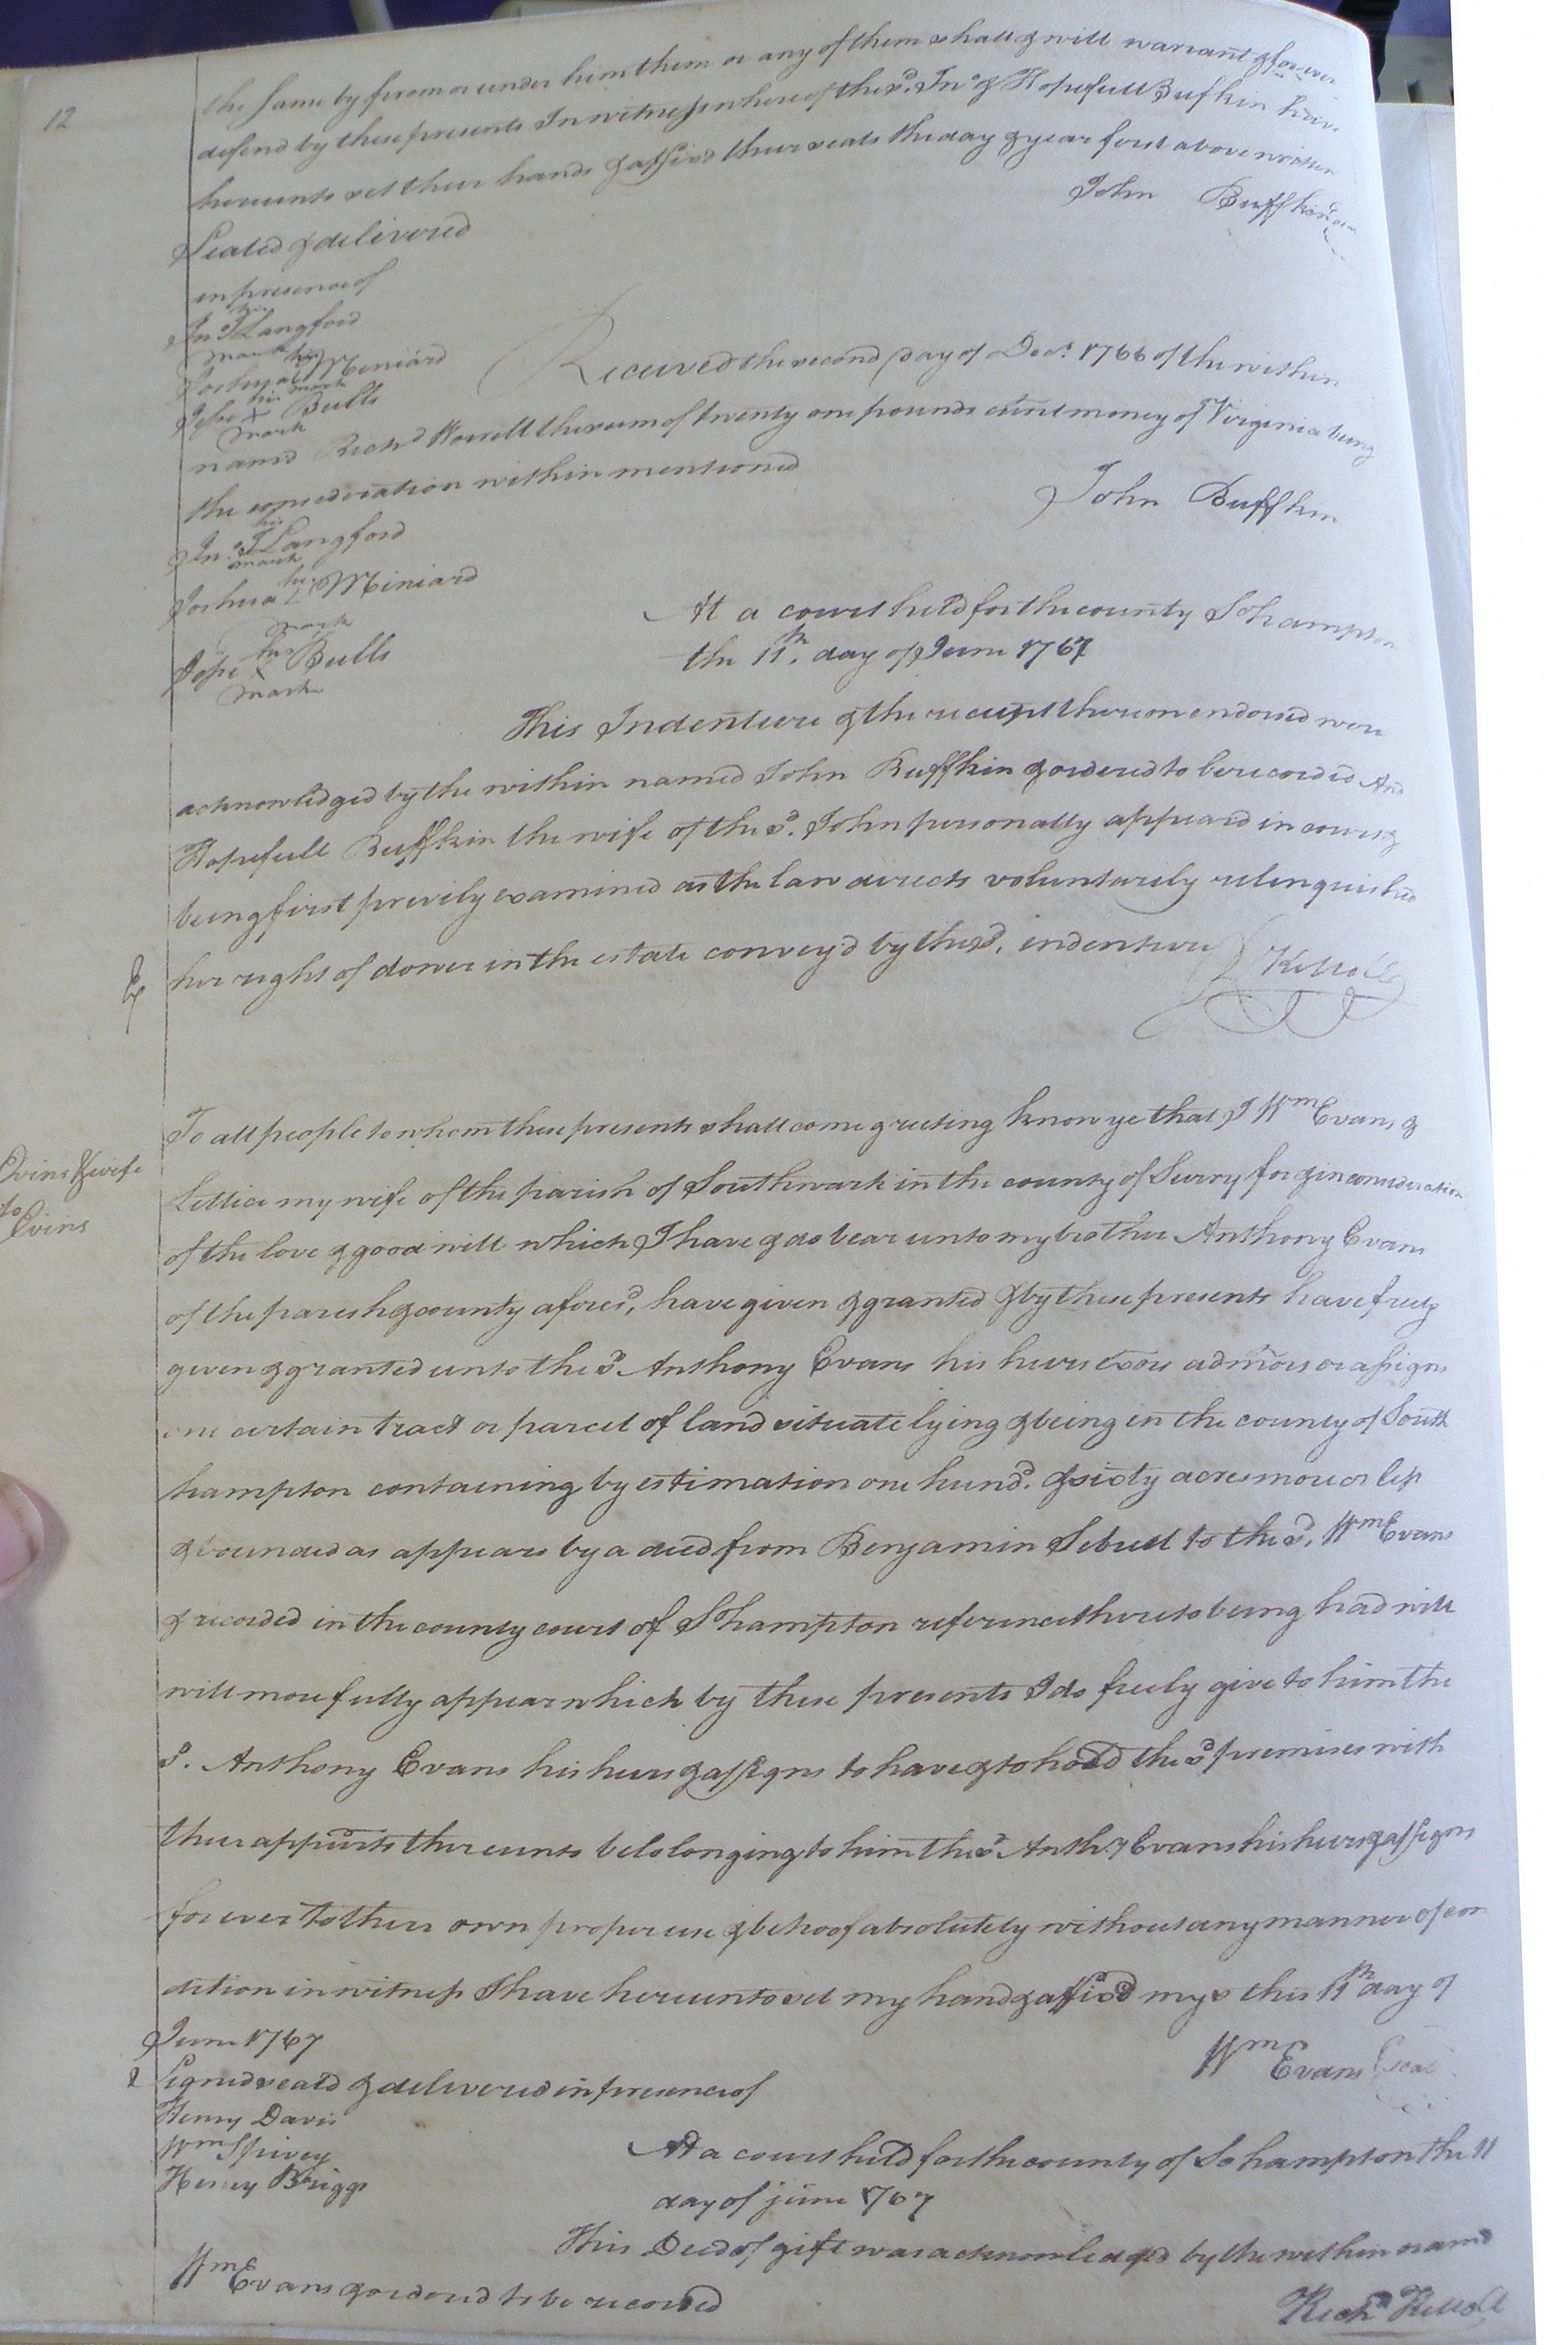 12
the same by from or under him them or any of them shall & will warrant & forever
defend by these presents In witness whereof the sd. Jno. & Hopefull Bufkin have
hereunto set their hands & affixd their seals the day & year first above written
John Buffkin seal
Sealed & delivered
in presence of
his
Jno. T Langford
mark his
Joshua Miniard
his mark
Jesse X Bulls
mark
Received the second day of Decr. 1766 of the within
namd Richd Howell the sum of twenty one pounds curnt money of Virginia being
the consideration within mentioned
John Buffkin
his
Jno. T Langford
mark
his
Joshua Miniard
mark
his
Jesse X Bulls
mark
At a court held for the county Sohampton
the 11th. day of June 1767
This Indenture & the receipt thereon endorsed were
acknowledged by the within named John Buffkin & ordered to be recorded And
Hopefull Buffkin the wife of the sd. John personally appeard in court &
being first privily examined as the law directs voluntarily relinquished
her right of dower in the estate convey'd by the sd. indenture
Ex
To all people to whom these presents shall come greeting know ye that I Wm Evans &
Evins & wife
to
Evins
Lettice my wife of the parish of Southwark in the county of Surry for & in consideration
of the love & good will which I have & do bear unto my brother Anthony Evans
of the parish & county aforesd, have given & granted & by these presents have freely
given & granted unto the sd Anthony Evans his heirs exors admors or assigns
one certain tract or parcel of land situate lying & being in the county of South
hampton containing by estimation one hund. & sixty acres more or less
& bounded as appears by a deed from Benjamin Sebrell to the sd. Wm Evans
& recorded in the county court of Sohampton reference thereto being had will
will more fully appear which by these presents I do freely give to him the
sd. Anthony Evans his heirs & assigns to have & to hold the sd premises with
their appurts thereunto belolonging to him the sd Anthy Evans his heirs & assigns
forever to their own proper use & behoof absolutely without any manner of con
dition in witness I have hereunto set my hand & affixd my s this 11th day of
June 1767
Wm Evans seal
Signed seald & delivered in presence of
Henry Davis
Wm Spivey
Henry Briggs
At a court held for the county of Sohampton the 11
day of june 1767
This Deed of gift was acknowledged by the within named
Wm Evans & orderd to be recorded
Richd Kello Cl